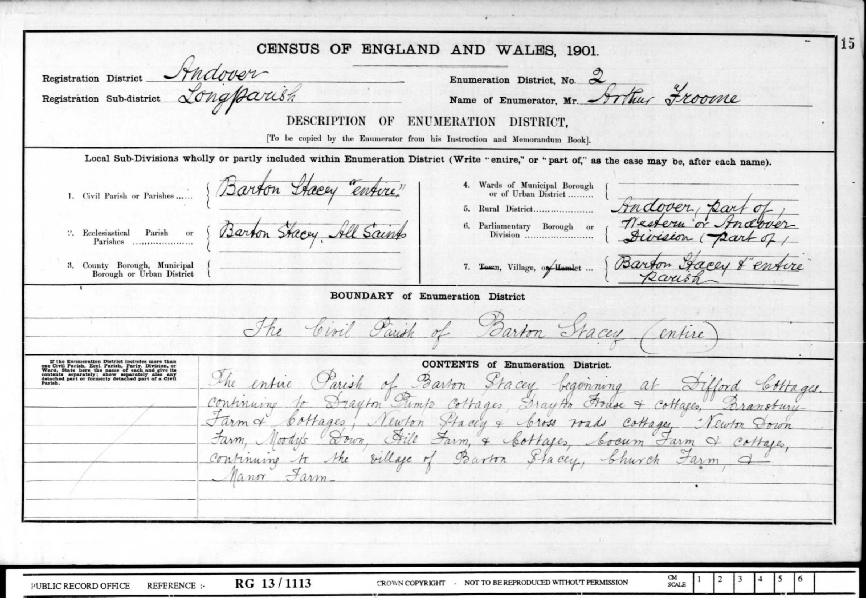 15
CENSUS OF ENGLAND AND WALES, 1901.
Registration District Andover
Enumeration District, No. 2
Registration Sub-district Longparish
Name of Enumerator, Mr. Arthur Froome
DESCRIPTION OF ENUMERATION DISTRICT,
[To be copied by the Enumerator from his Instruction and Memorandum Book].
Local Sub-Divisions wholly or partly included within Enumeration District (Write "entire," or "part of," as the case may be, after each name).
1. Civil Parish or Parishes ...... Barton Stacey "entire"
2. Ecclesiastical Parish or
Parishes .................. Barton Stacey. All Saints
3. County Borough, Municipal
Borough or Urban District
4. Wards of Municipal Borough
or of Urban District ........
5. Rural District .............. Andover, part of,
6. Parliamentary Borough or
Division .................. Western or Andover
Division, (part of,
7. Town, Village, or Hamlet ... Barton Stacey & "entire"
parish
BOUNDARY of Enumeration District
The Civil Parish of Barton Stacey (entire)
If the Enumeration District includes more than
one Civil Parish, Eccl. Parish, Party. Division, or
Ward, State here the name of each and give its
contents separately; show separately also any
detached part or formerly detached part of a Civil
Parish.
CONTENTS of Enumeration District.
The entire Parish of Barton Stacey beginning at Difford Cottages.
continuing to Drayton Pump cottages, Drayton House & cottages, Bransbury
Farm & Cottages, Newton Stacey & Cross roads cottages, Newton Down
Farm, Moodys Down, Hill Farm, & Cottages, Cocum Farm & cottages,
continuing to the village of Barton Stacey, Church Farm, &
Manor Farm
PUBLIC RECORD OFFICE REFERENCE :- RG 13/1113 CROWN COPYRIGHT - NOT TO BE REPRODUCED WITHOUT PERMISSION
CM
SCALE
1 2 3 4 5 6